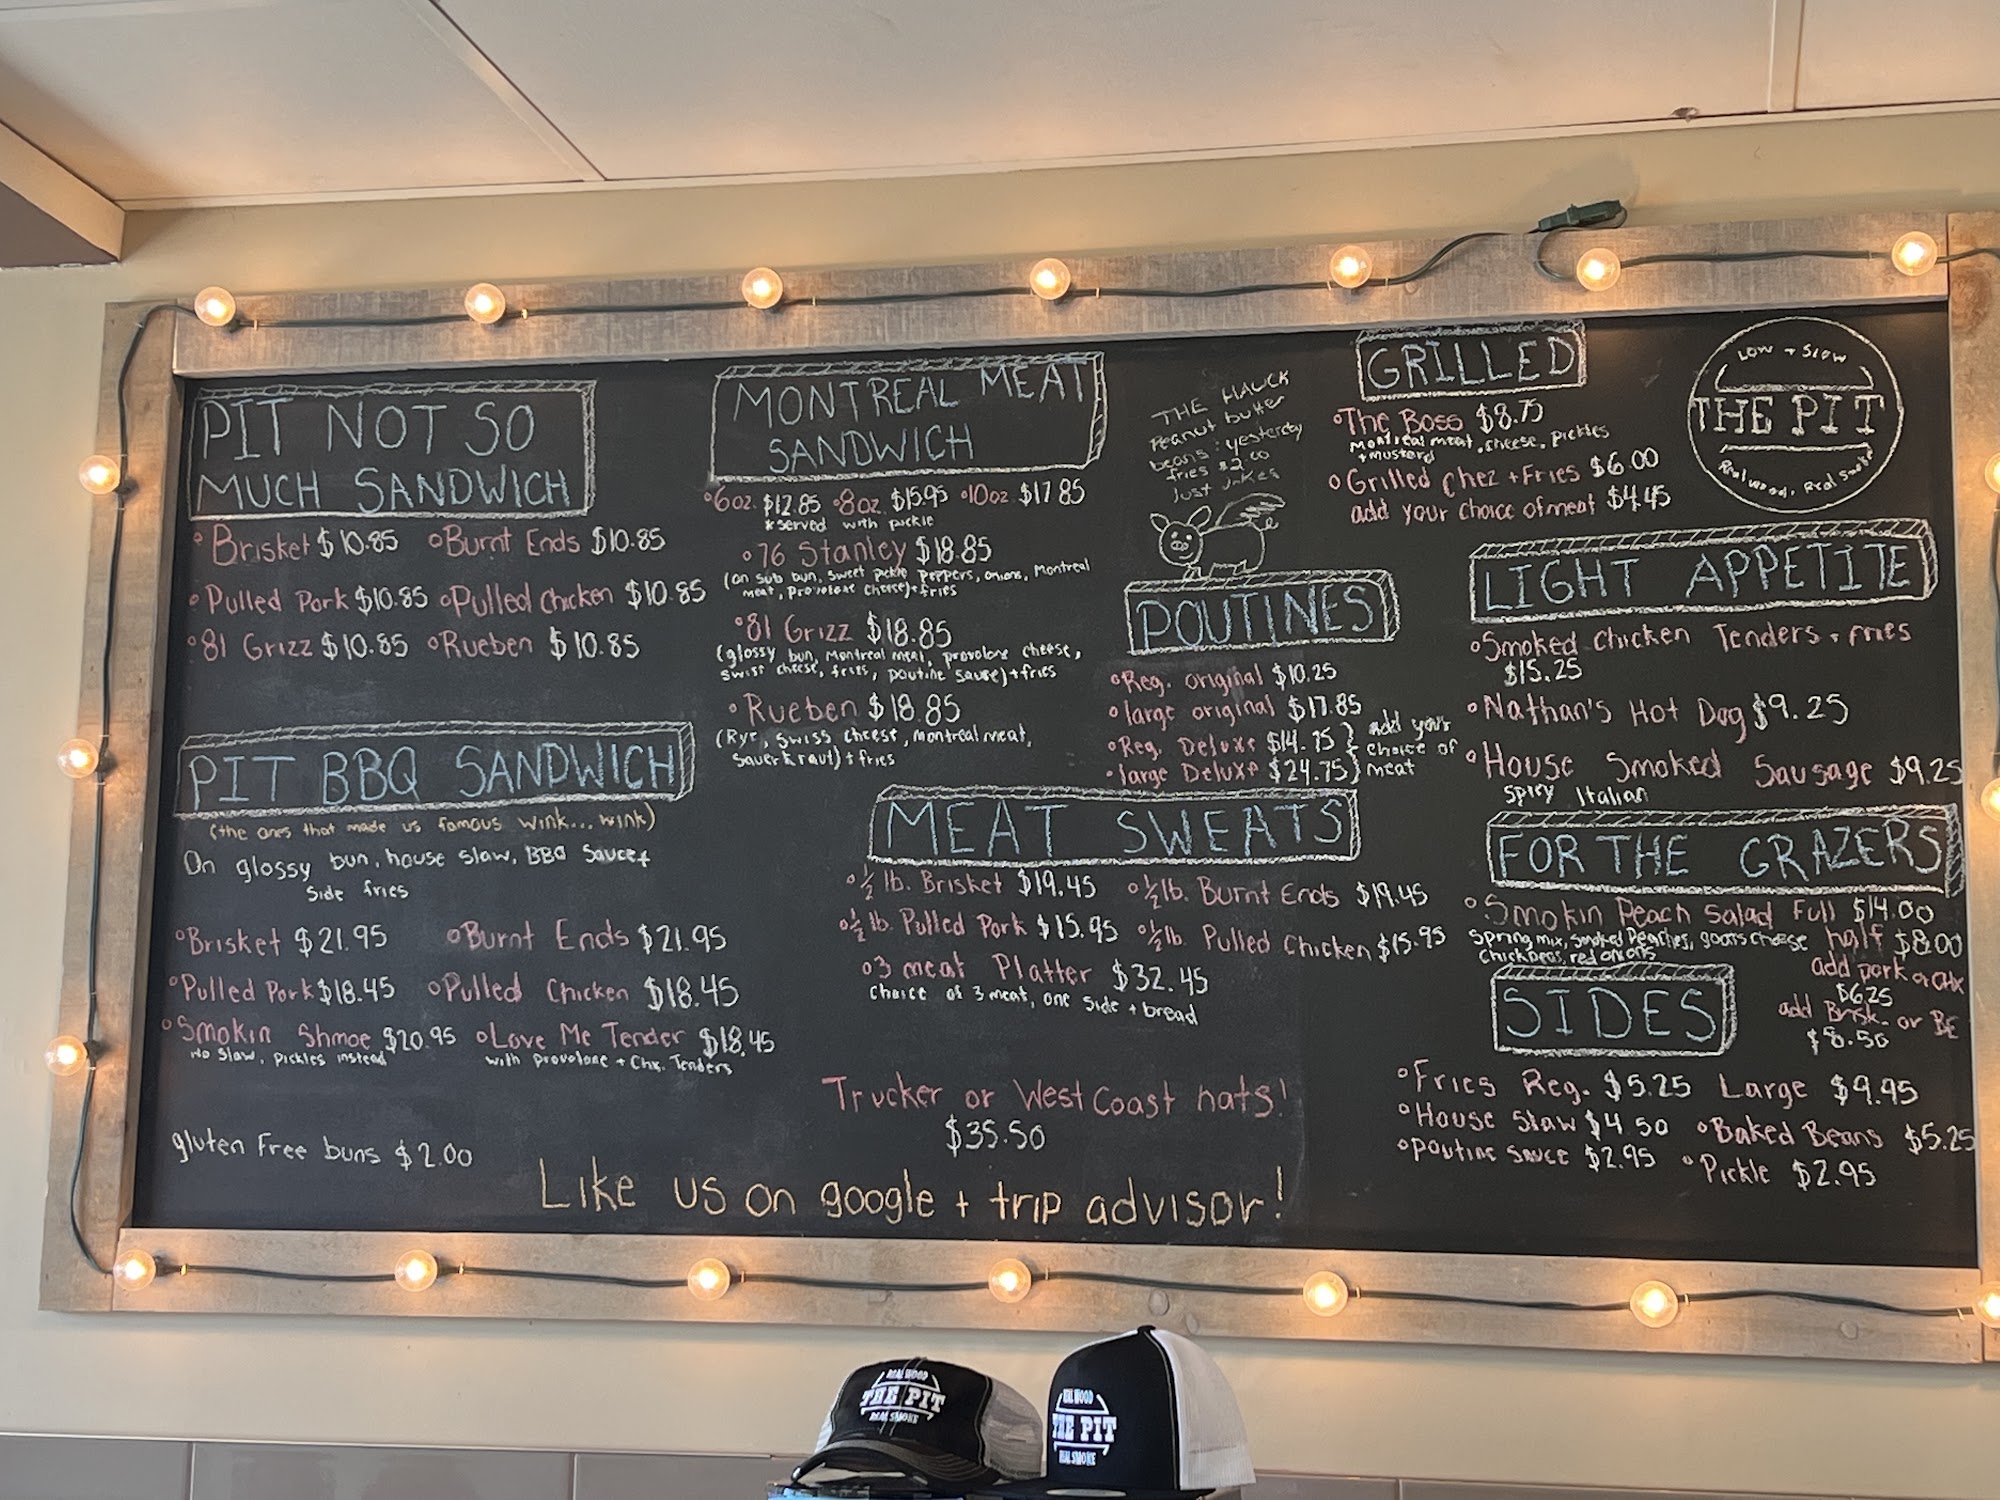 PIT NOT SO
MUCH SANDWICH
Brisket $10.85 Burnt Ends $10.85
Pulled Pork $10.85 Pulled Chicken $10.85
81 Grizz $10.85 Rueben $10.85
PIT BBQ SANDWICH
(the ones that made us famous wink... wink)
On glossy bun, house slaw, BBQ Sauce +
Side fries
Brisket $21.95 Burnt Ends $21.95
Pulled Pork $18.45 Pulled Chicken $18.45
Smokin Shmoe $20.95 Love Me Tender $18.45
No Slaw, pickles instead with provolone + Chx. Tenders
gluten Free buns $2.00
MONTREAL MEAT
SANDWICH
6oz. $12.85 8oz. $15.95 10oz. $17.85
*served with pickle
76 Stanley $18.85
(on sub bun, sweet pickle peppers, onions, Montreal
meat, provolone cheese) + fries
81 Grizz $18.85
(glossy bun, Montreal meat, provolone cheese,
swiss cheese, fries, poutine sauce) + fries
Rueben $18.85
(Rye, Swiss cheese, montreal meat,
Sauerkraut) + fries
THE HAUCK
Peanut butter
beans: yesterday
fries $2.00
Just Jakes
POUTINES
Reg. original $10.25
large original $17.85
Reg. Deluxe $14.75
large Deluxe $24.75
add your
choice of
meat
MEAT SWEATS
½ lb. Brisket $19.45 ½ lb. Burnt Ends $19.45
½ lb. Pulled Pork $15.95 ½ lb. Pulled Chicken $15.95
3 meat Platter $32.45
Choice of 3 meat, one side + bread
Trucker or West Coast hats!
$35.50
Like us on google + trip advisor!
GRILLED
The Boss $8.75
Montreal meat, cheese, pickles
+ mustard
Grilled Chez + Fries $6.00
add your choice of meat $4.45
LOW + SLOW
THE PIT
Real wood, Real Smoke
LIGHT APPETITE
Smoked Chicken Tenders + fries
$15.25
Nathan's Hot Dog $9.25
House Smoked Sausage $9.25
Spicy Italian
FOR THE GRAZERS
Smokin Peach Salad Full $14.00
Spring mix, smoked Peaches, goats cheese half $8.00
Chickpeas, red onions
add pork or CHX
$6.25
add Brisk. or BE
$8.50
SIDES
Fries Reg. $5.25 Large $9.95
House Slaw $4.50 Baked Beans $5.25
Poutine Sauce $2.95 Pickle $2.95
REAL WOOD
THE PIT
REAL SMOKE
REAL WOOD
THE PIT
REAL SMOKE